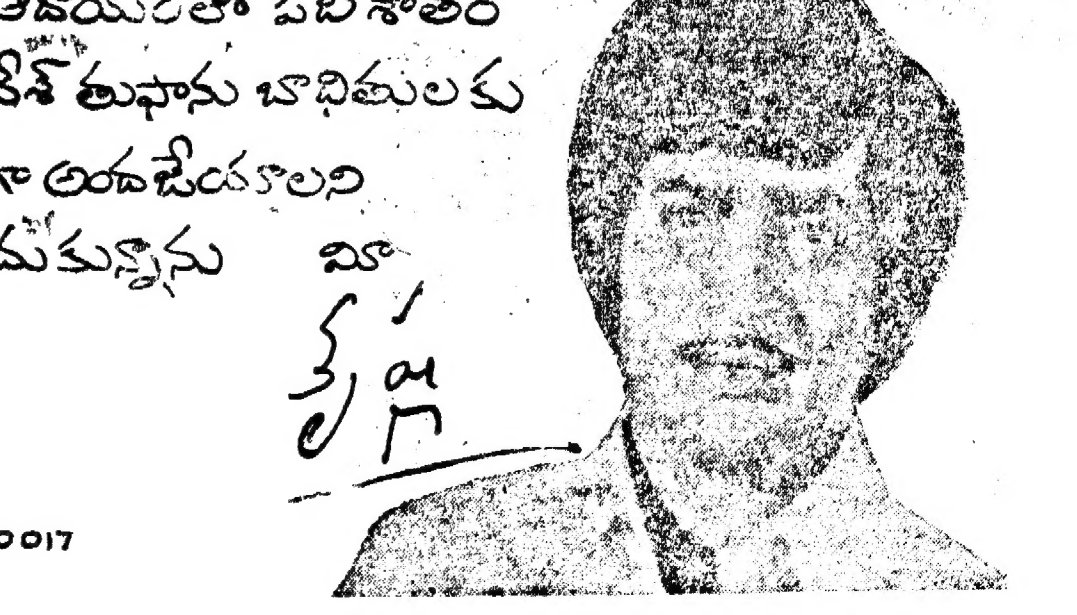 ఆదాయంలో పది శాతం
దేశ్ తుఫాను బాధితులకు
గా అందజేయాలని
కున్నాను మీ
కృష్ణ
0017